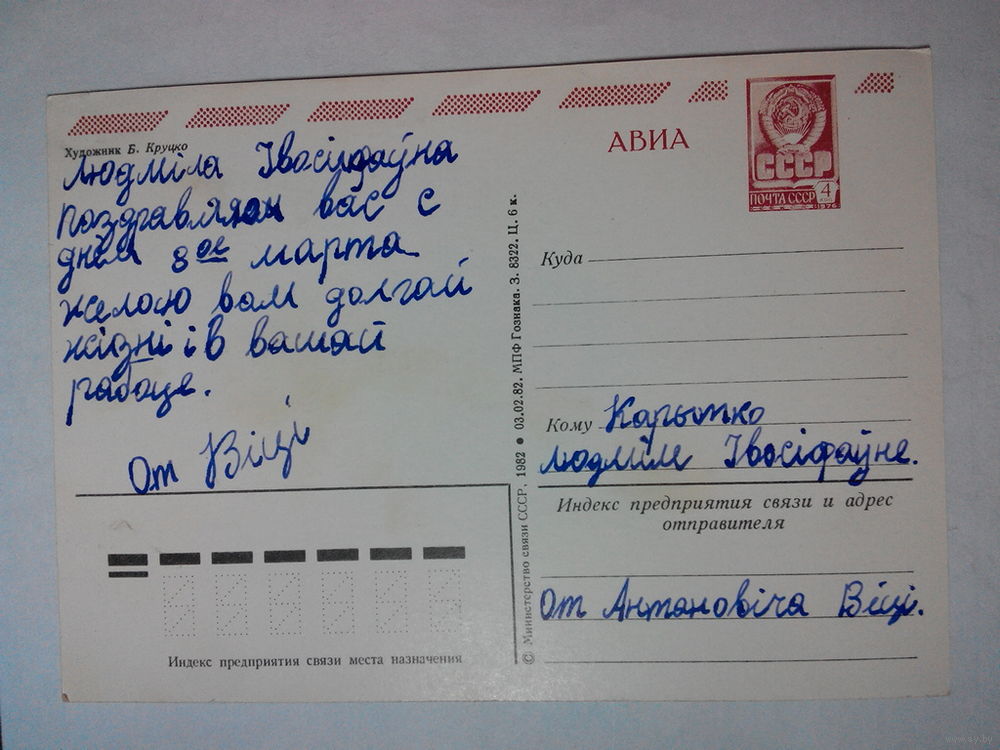 Художник Б. Круцко
Людміла Івосіфаўна
поздравляю вас с
днём 8ое марта
желою вам долгай
жізні і в вашай
рабоце.
От Віці
Индекс предприятия связи места назначения
© Министерство связи СССР, 1982 ● 03.02.82. МПФ Гознака. З. 8322. Ц. 6 к.
АВИА
СССР
ПОЧТА СССР 4
1976
Куда
Кому Карытко
людміле Івосіфаўне.
Индекс предприятия связи и адрес
отправителя
От Антановіча Віці.
www.ay.by